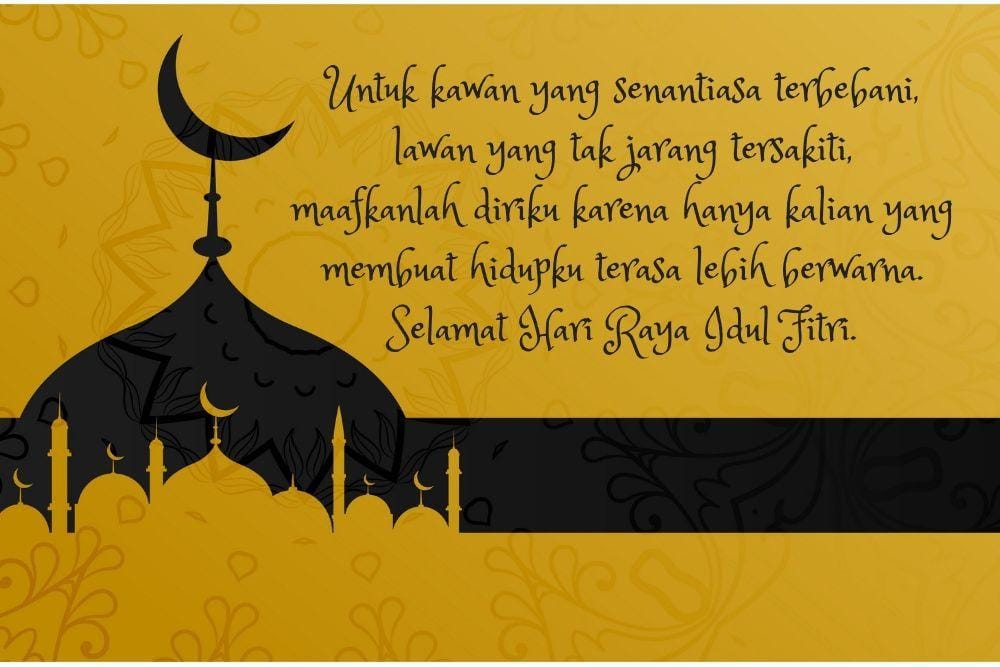 Untuk kawan yang senantiasa terbebani,
lawan yang tak jarang tersakiti,
maafkanlah diriku karena hanya kalian yang
membuat hidupku terasa lebih berwarna.
Selamat Hari Raya Idul Fitri.